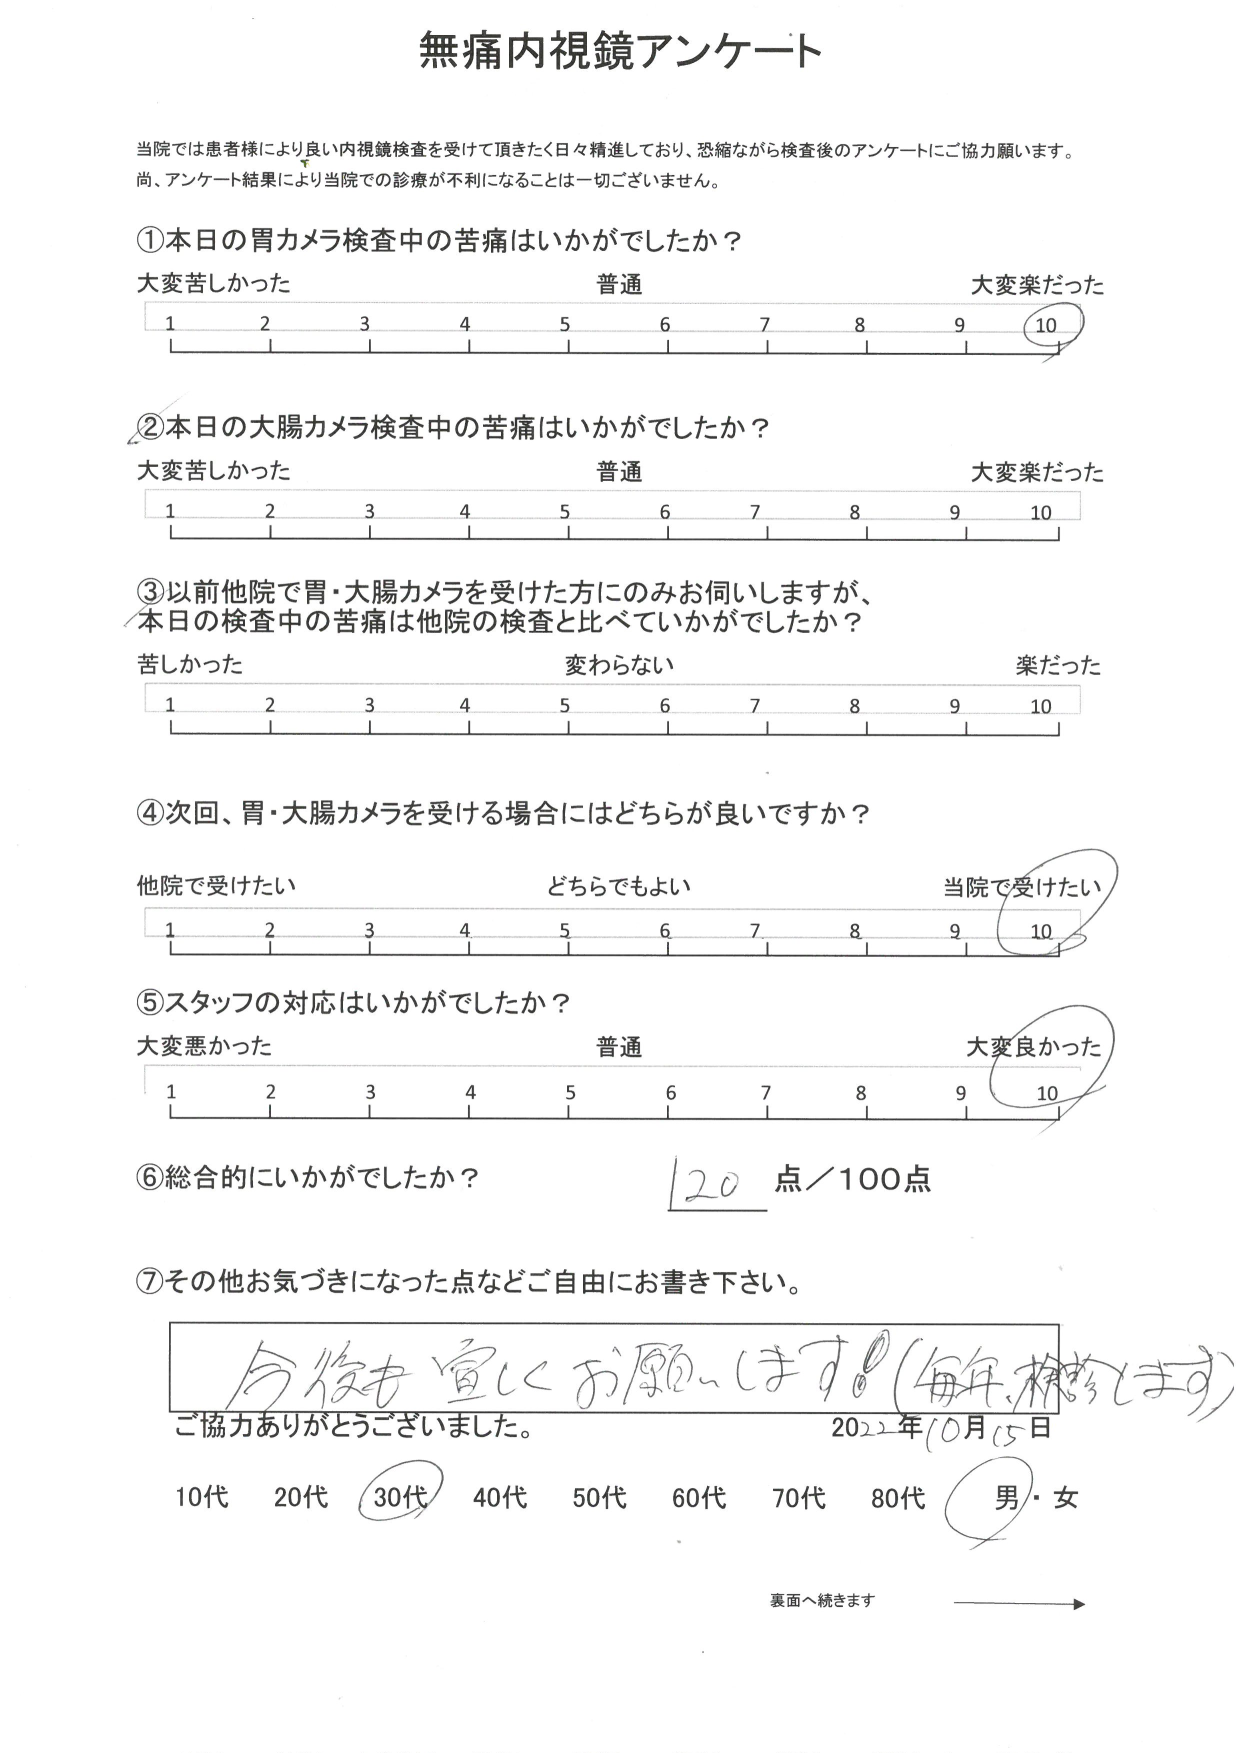 無痛内視鏡アンケート
当院では患者様により良い内視鏡検査を受けて頂きたく日々精進しており、恐縮ながら検査後のアンケートにご協力願います。
尚、アンケート結果により当院での診療が不利になることは一切ございません。
①本日の胃カメラ検査中の苦痛はいかがでしたか？
大変苦しかった 普通 大変楽だった
1 2 3 4 5 6 7 8 9 10
②本日の大腸カメラ検査中の苦痛はいかがでしたか？
大変苦しかった 普通 大変楽だった
1 2 3 4 5 6 7 8 9 10
③以前他院で胃・大腸カメラを受けた方にのみお伺いしますが、
本日の検査中の苦痛は他院の検査と比べていかがでしたか？
苦しかった 変わらない 楽だった
1 2 3 4 5 6 7 8 9 10
④次回、胃・大腸カメラを受ける場合にはどちらが良いですか？
他院で受けたい どちらでもよい 当院で受けたい
1 2 3 4 5 6 7 8 9 10
⑤スタッフの対応はいかがでしたか？
大変悪かった 普通 大変良かった
1 2 3 4 5 6 7 8 9 10
⑥総合的にいかがでしたか？ 120 点／100点
⑦その他お気づきになった点などご自由にお書き下さい。
今後も宜しくお願いします!(毎年、検診します)
ご協力ありがとうございました。 2022年10月15日
10代 20代 30代 40代 50代 60代 70代 80代 男・女
裏面へ続きます